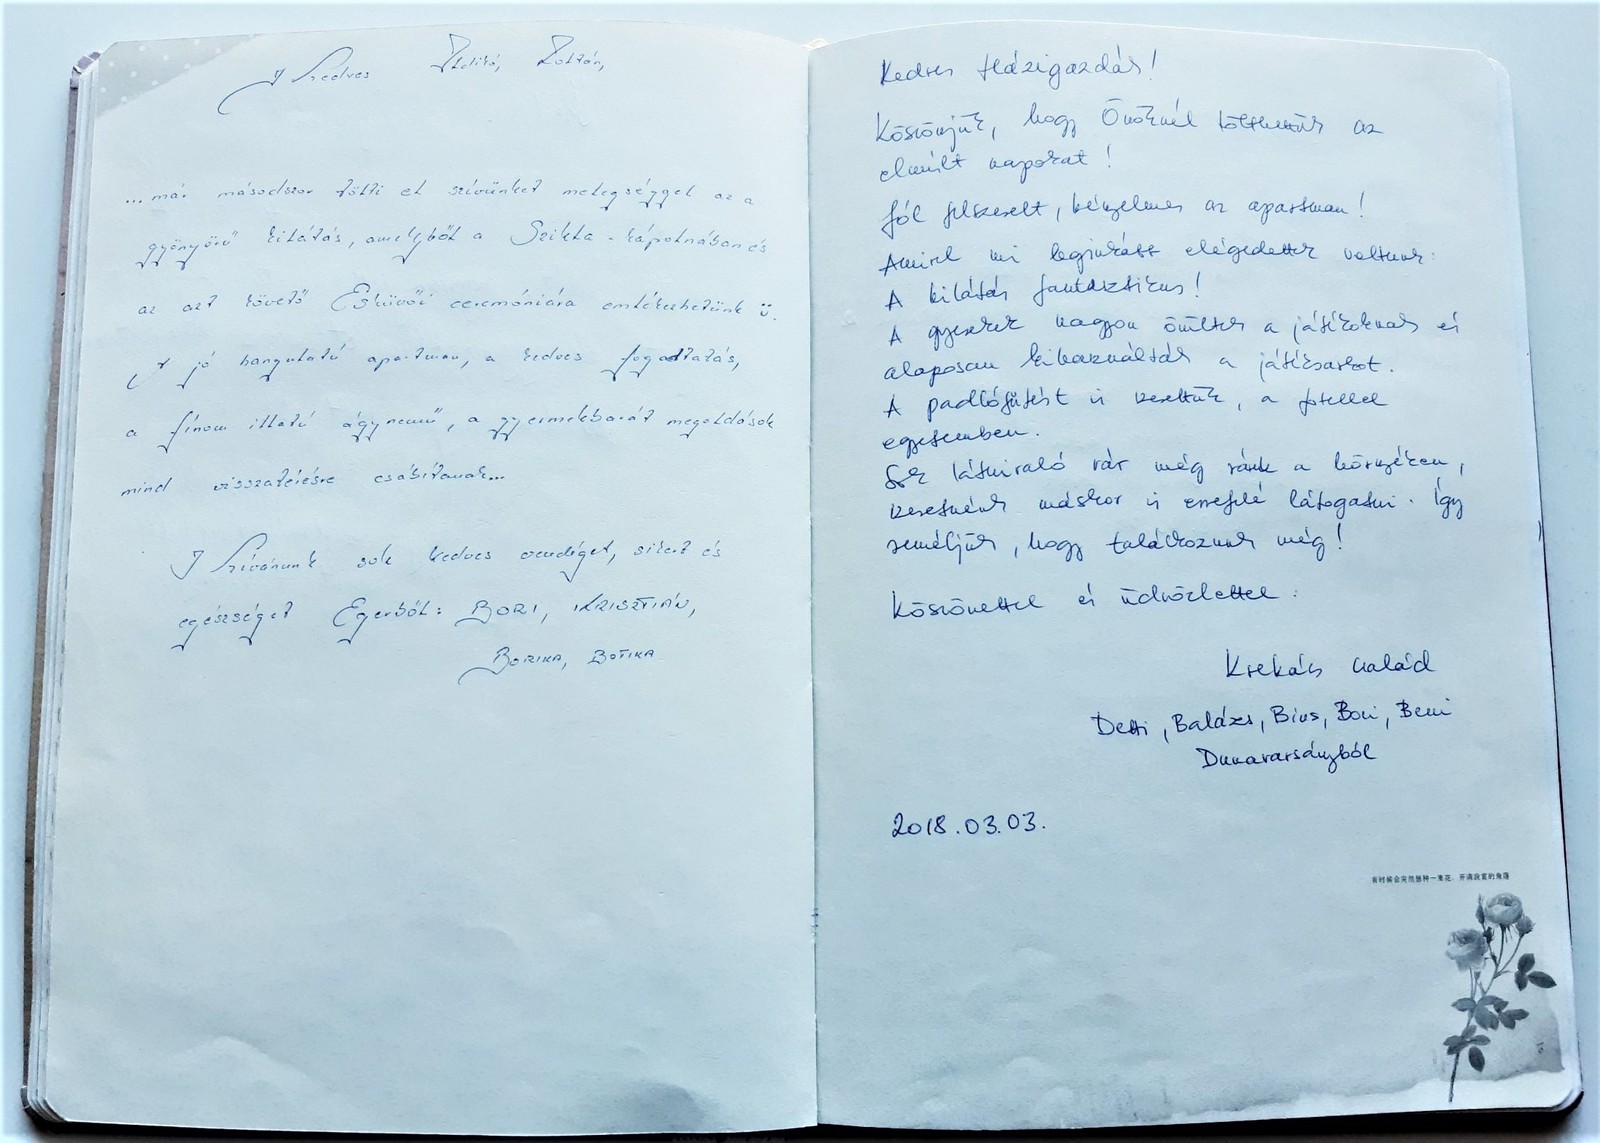 Kedves Ildikó, Zoltán,
... már másodszor tölti el szívünket melegséggel az a
gyönyörű kilátás, amelyből a Szikla-kápolnában és
az azt követő Esküvői ceremóniára emlékezhetünk ü.
A jó hangulatú apartman, a kedves fogadtatás,
a finom illatú ágynemű, a gyermekbarát megoldások
mind visszatérésre csábítanak...
Kívánunk sok kedves vendéget, sikert és
egészséget Egerből: BORI, KRISZTIÁN,
BORIKA, BOTIKA
Kedves Házigazdák!
Köszönjük, hogy Önöknél tölthettük az
elmúlt napokat!
Jól felszerelt, kényelmes az apartman!
Amivel mi leginkább elégedettek voltunk:
A kilátás fantasztikus!
A gyerekek nagyon örültek a játékoknak és
alaposan kihasználták a játéksarkot.
A padlófűtést is szerettük, a fotellel
egyetemben.
Sok látnivaló vár még ránk a környéken,
szeretnénk máskor is errefelé látogatni. Így
reméljük, hogy találkozunk még!
Köszönettel és üdvözlettel:
család
Detti, Balázs, Bius, Bori, Beni
Dunavarsányból
2018.03.03.
有时候会突然想种一束花，开满寂寞的角落